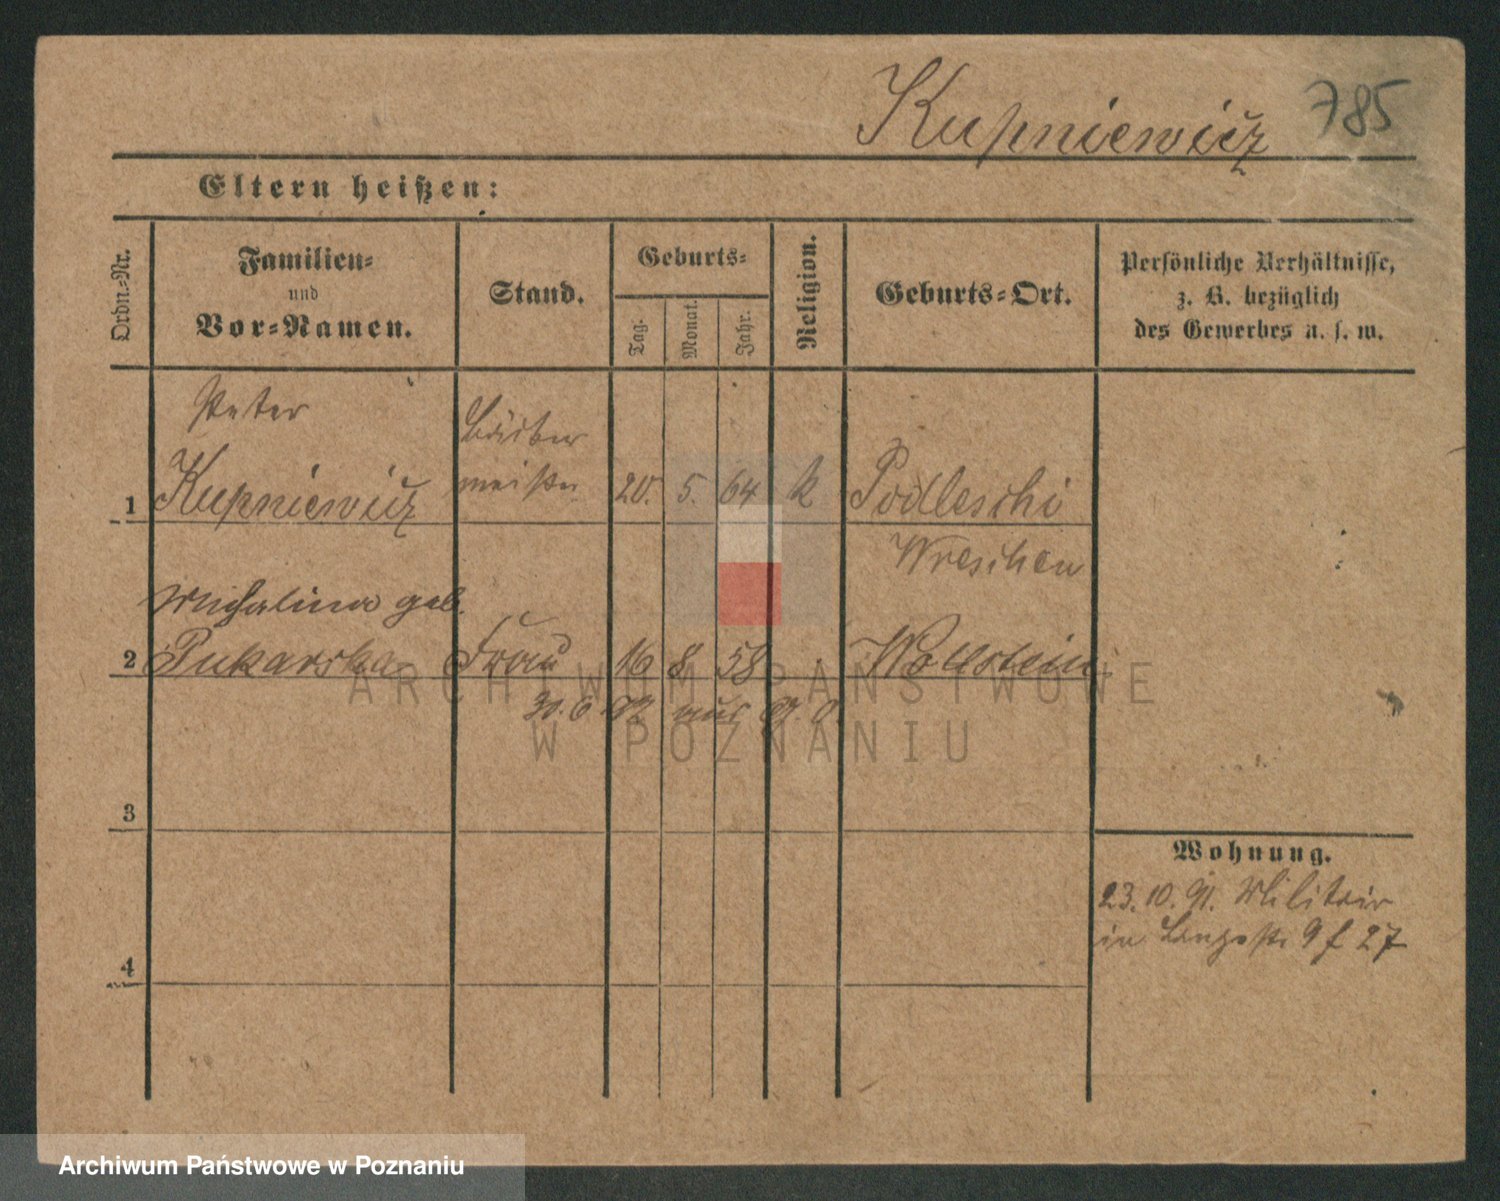 Kupniewicz 785
Eltern heißen:
Ordn.-Nr.
Familien-
und
Vor-Namen.
Stand.
Geburts-
Tag.
Monat.
Jahr.
Religion.
Geburts-Ort.
Persönliche Verhältnisse,
z. B. bezüglich
des Gewerbes u. s. w.
Peter
1 Kupniewicz
meister
20. 5. 64 k Podleschi
Wreschen
Michalina geb.
2 Pukarska Frau 16 8 58 Wollstein
30. 6. 92 aus
3
Wohnung.
23. 10. 91. Militair
in 9 f 27
4
ARCHIWUM PAŃSTWOWE
W POZNANIU
Archiwum Państwowe w Poznaniu